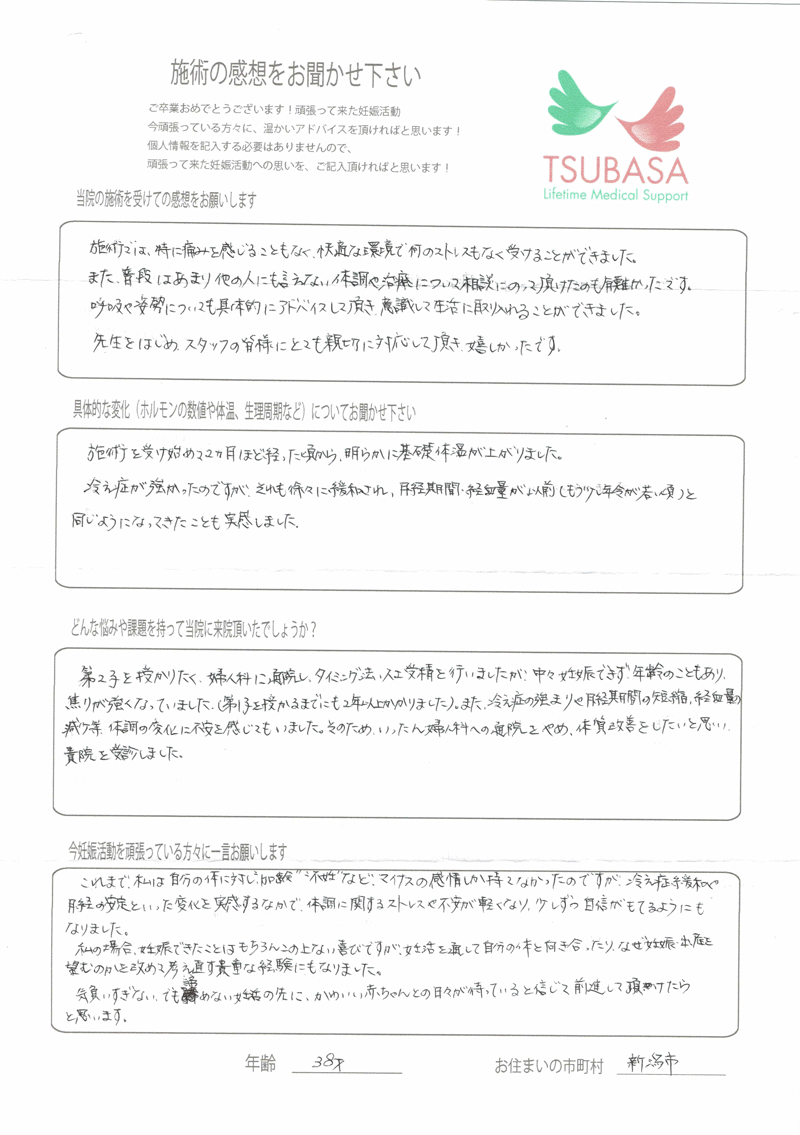 施術の感想をお聞かせ下さい
ご卒業おめでとうございます！頑張って来た妊娠活動
今頑張っている方々に、温かいアドバイスを頂ければと思います！
個人情報を記入する必要はありませんので、
頑張って来た妊娠活動への思いを、ご記入頂ければと思います！
TSUBASA
Lifetime Medical Support
当院の施術を受けての感想をお願いします
施術では、特に痛みを感じることもなく、快適な環境で何のストレスもなく受けることができました。
また、普段はあまり他の人にも言えない体調や治療について相談にのって頂けたのも有難かったです。
呼吸や姿勢についても具体的にアドバイスして頂き、意識して生活に取り入れることができました。
先生をはじめ、スタッフの皆様にとても親切に対応して頂き、嬉しかったです。
具体的な変化（ホルモンの数値や体温、生理周期など）についてお聞かせ下さい
施術を受け始めて2ヵ月ほど経った頃から、明らかに基礎体温が上がりました。
冷え症が強かったのですが、それも徐々に緩和され、月経期間・経血量が以前（もう少し年令が若い頃）と
同じようになってきたことも実感しました。
どんな悩みや課題を持って当院に来院頂いたでしょうか？
第2子を授かりたく、婦人科に通院し、タイミング法、人工受精を行いましたが、中々妊娠できず、年齢のこともあり、
焦りが強くなっていました。（第1子を授かるまでにも2年以上かかりました）。また、冷え症の強まりや月経期間の短縮、経血量の
減少等、体調の変化に不安を感じてもいました。そのため、いったん婦人科への通院をやめ、体質改善をしたいと思い、
貴院を受診しました。
今妊娠活動を頑張っている方々に一言お願いします
これまで、私は自分の体に対し"加齢""不妊"など、マイナスの感情しか持てなかったのですが、冷え症緩和や
月経の安定といった変化を実感するなかで、体調に関するストレスや不安が軽くなり、少しずつ自信がもてるようにも
なりました。
私の場合、妊娠できたことはもちろんこの上ない喜びですが、妊活を通して自分の体と向き合ったり、なぜ妊娠・出産を
望むのかを改めて考え直す貴重な経験にもなりました。
気負いすぎない、でも諦めない妊活の先に、かわいい赤ちゃんとの日々が待っていると信じて前進して頂けたら
と思います。
年齢 38才 お住まいの市町村 新潟市